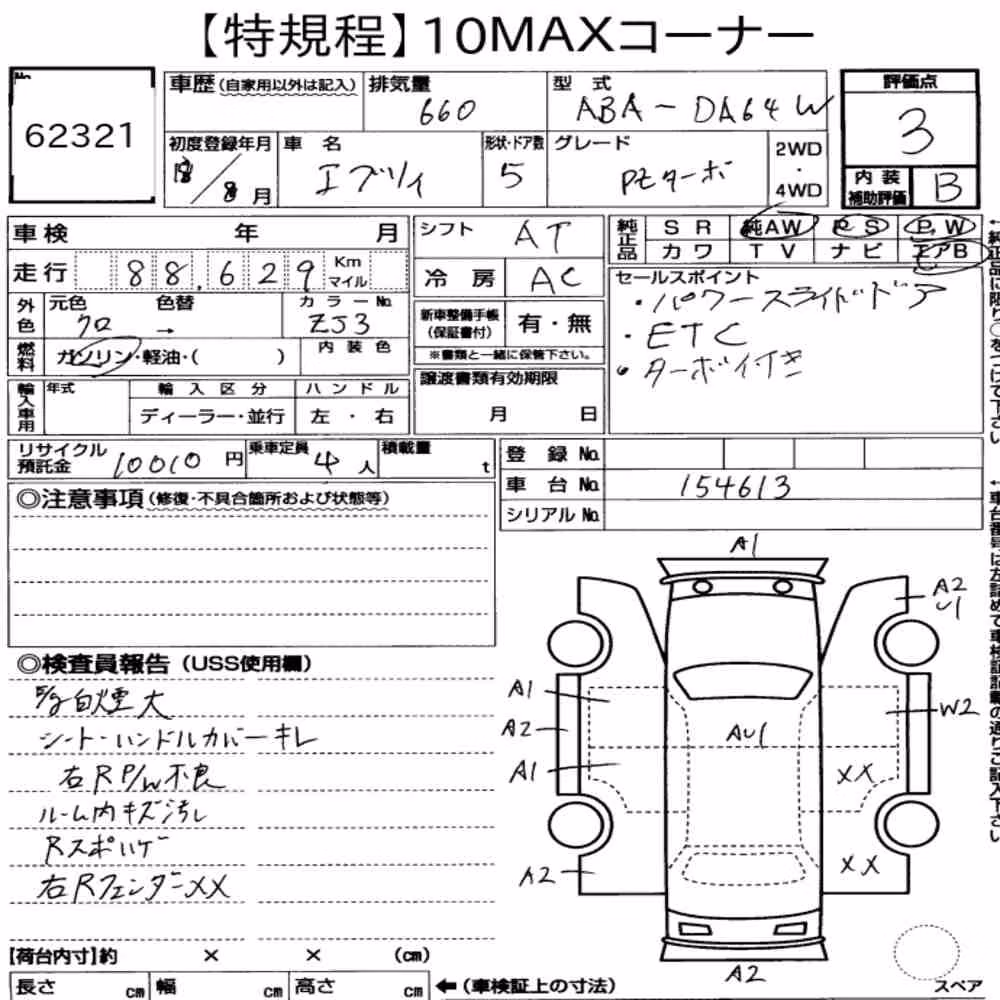 【特規程】10MAXコーナー
No
62321
車歴 (自家用以外は記入)
排気量
660
型 式
ABA-DA64W
評価点
3
初度登録年月
8月
車 名
エブリィ
形状・ドア数
5
グレード
PZターボ
2WD
・
4WD
内装
補助評価
B
車検 年 月
シフト
AT
純正品
SR 純AW PS P.W
カワ TV ナビ エアB
走行 88,629 Km マイル
冷房
AC
セールスポイント
・パワースライドドア
・ETC
・ターボ付き
外色
元色 色替
クロ →
カラーNo.
ZJ3
新車整備手帳
(保証書付)
有・無
※書類と一緒に保管下さい。
燃料
ガソリン・軽油・( )
内装色
輸入車用
年式
輸入区分
ハンドル
ディーラー・並行
左・右
譲渡書類有効期限
月 日
リサイクル
預託金
10010円
乗車定員
4人
積載量
t
登録No.
車台No.
154613
シリアルNo.
◎注意事項 (修復・不具合箇所および状態等)
←純正品に限り○をつけて下さい
←車台番号は左詰めで車検証記載の通りご記入下さい
◎検査員報告 (USS使用欄)
白煙大
シート・ハンドルカバーキレ
右R P/W不良
ルーム内キズ汚レ
Rスポイラー
右RフェンダーXX
A1
A2
U1
A1
A2
W2
AU1
A1
XX
A2
XX
A2
【荷台内寸】約 × × (cm)
長さ cm 幅 cm 高さ cm
←(車検証上の寸法)
スペア